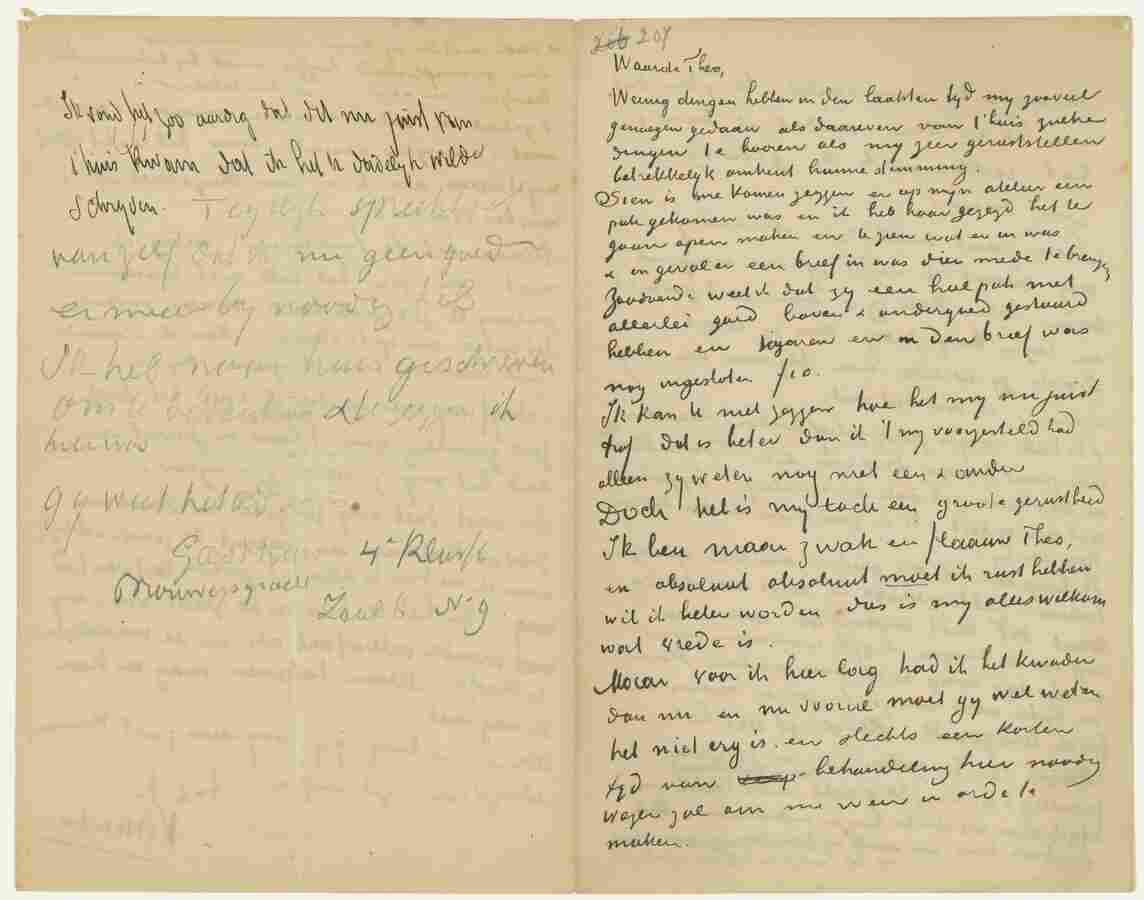 Ik vond het zoo aardig dat dit nu juist van
t'huis kwam dat ik het U dadelijk wilde
schrijven. Tegelijk spreekt
van zelf dat ik nu geen goed
er meer by noodig heb
Ik heb naar huis geschreven
om te & te zeggen ik
hun
Gy weet het
Gasthuis 4e Klasse
Brouwersgracht
Zaal 6 No 9
206 207
Waarde Theo,
Weinig dingen hebben in den laatsten tyd my zooveel
genoegen gedaan als daareven van t'huis zulke
dingen te hooren als my zeer geruststellen
betrekkelyk omtrent hunne stemming.
Sien is me komen zeggen er op myn atelier een
pak gekomen was en ik heb haar gezegd het te
gaan open maken en te zien wat er in was
& in geval er een brief in was dien mede te brengen
Zoodoende weet ik dat zy een heel pak met
allerlei goed boven & ondergoed gestuurd
hebben en sigaren en in den brief was
nog ingesloten f10.
Ik kan U niet zeggen hoe het my nu juist
trof dat is beter dan ik 't my voorgesteld had
alleen zy weten nog niet een & ander
Doch het is my toch een groote gerustheid
Ik ben maar zwak en flaauw Theo,
en absoluut absoluut moet ik rust hebben
wil ik beter worden dus is my alles welkom
wat vrede is.
Maar voor ik hier lag had ik het kwader
dan nu en nu vooral moet gy wel weten
het niet erg is en slechts een korten
tyd van behandeling hier noodig
wezen zal om me weer in orde te
maken.